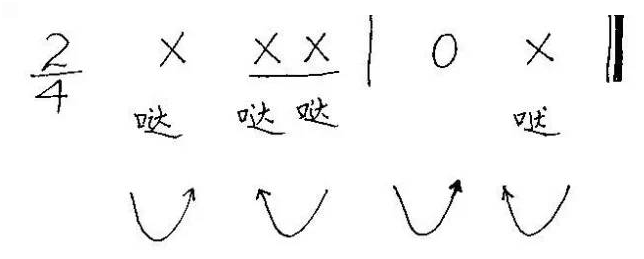 2/4 X X X | 0 X ‖
哒 哒 哒 哒